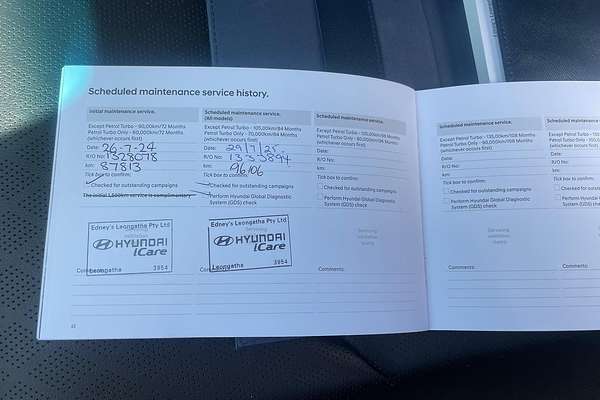 Scheduled maintenance service history.
Initial maintenance service.
Except Petrol Turbo - 90,00km/72 Months
Petrol Turbo Only - 60,00km/72 Months
(whichever occurs first)
Date: 26-7-24
R/O No: 1328078
km: 87813
Tick box to confirm:
Checked for outstanding campaigns
The initial 1,500km service is complimentary
Edney's Leongatha Pty Ltd
HYUNDAI
iCare
Leongatha 3954
Comments:
Scheduled maintenance service.
(All models)
Except Petrol Turbo - 105,00km/84 Months
Petrol Turbo Only - 70,00km/84 Months
(whichever occurs first)
Date: 29/7/25.
R/O No:
km: 96106
Tick box to confirm:
Checked for outstanding campaigns
Perform Hyundai Global Diagnostic
System (GDS) check
Edney's Leongatha Pty Ltd
HYUNDAI
iCare
Leongatha 3954
Scheduled maintenance service.
Date:
R/O No:
km:
Tick box to confirm:
Checked for outstanding campaigns
Perform Hyundai Global Diagnostic
System (GDS) check
Servicing
validation
stamp
Comments:
22
Scheduled maintenance service.
Except Petrol Turbo - 135,00km/108 Months
(whichever occurs first)
Date:
R/O No:
km:
Tick box to confirm:
Checked for outstanding campaigns
Perform Hyundai Global Diagnostic
System (GDS) check
Servicing
validation
stamp
Comments:
Scheduled maintenance
Except Petrol Turbo
(whichever occurs first)
Date:
R/O No:
km:
Tick box to confirm:
Comments: